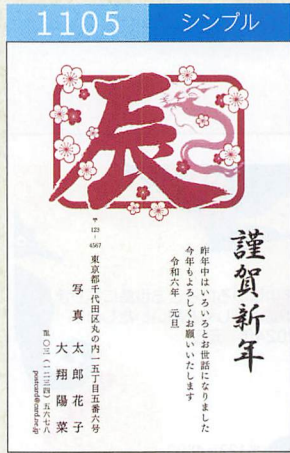 1105 シンプル
辰
謹賀新年
昨年中はいろいろとお世話になりました
今年もよろしくお願いいたします
令和六年 元旦
〒123-4567 東京都千代田区丸の内一五丁目五番六号
写真 太郎 花子
大翔 陽菜
電〇三(一二三四)五六七八
postcard@card.or.jp